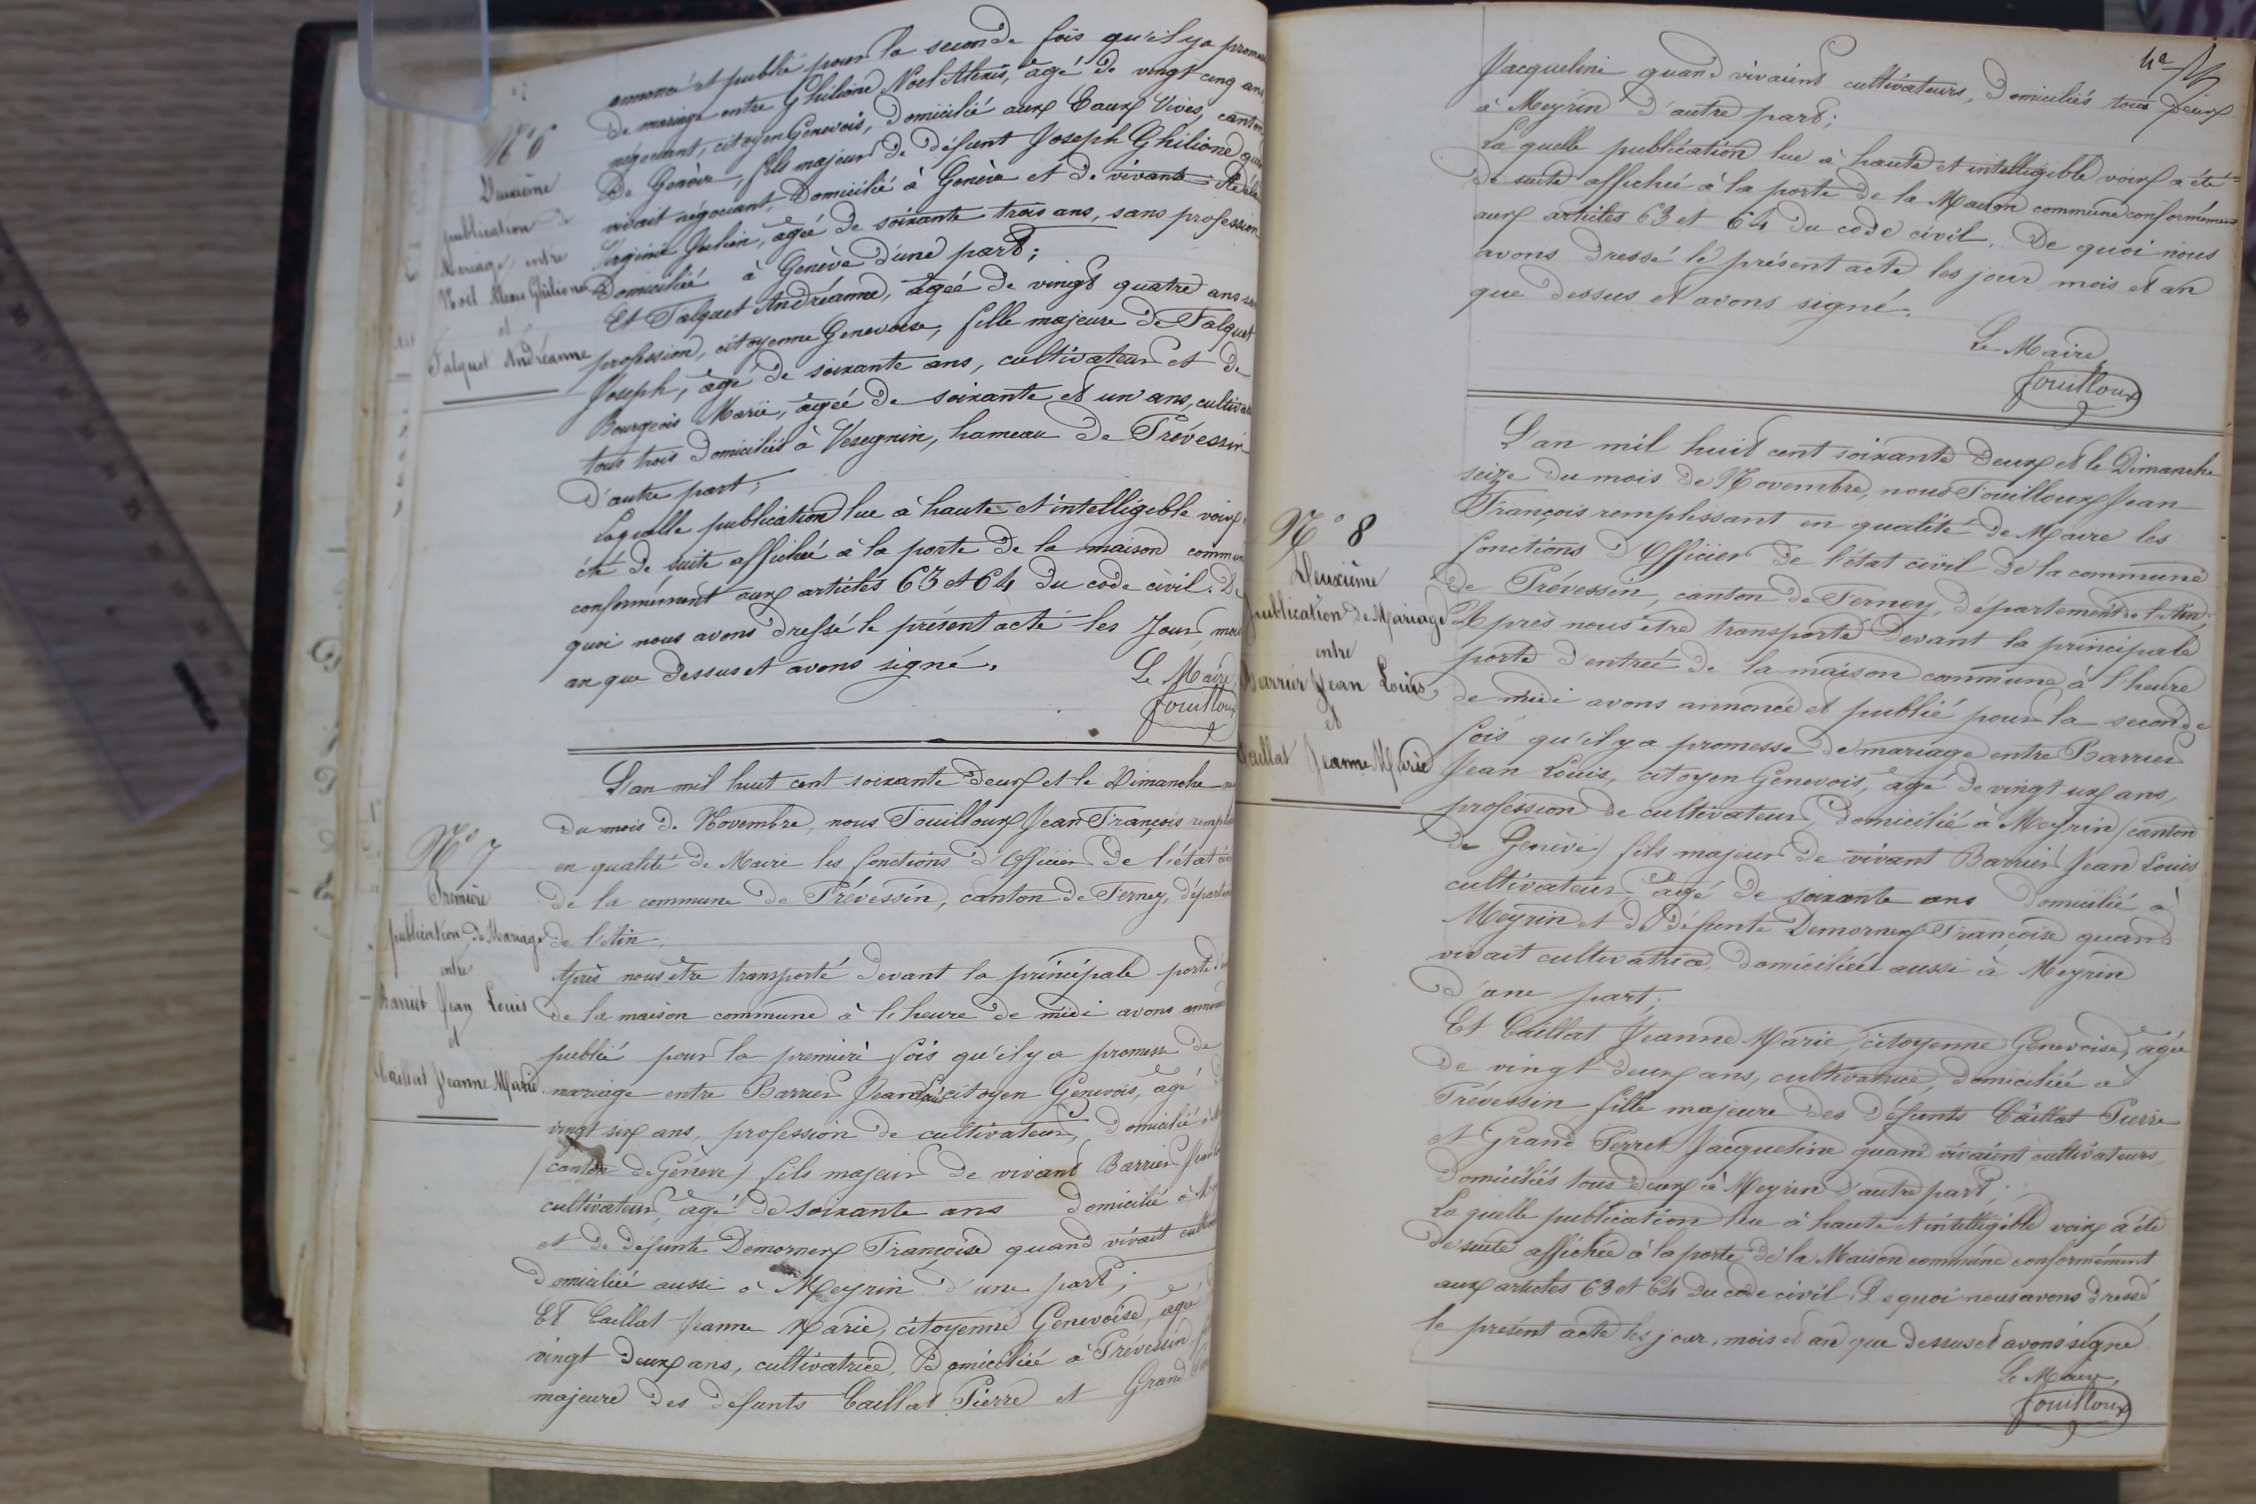 annoncé et publié pour la seconde fois qu'il y a promesse
de mariage entre Ghilione Noel Alexis, âgé de vingt cinq ans
négociant, citoyen Genevois, domicilié aux Eaux Vives, canton
de Genève, fils majeur de défunt Joseph Ghilione quand
vivait négociant, domicilié à Genève et de vivante
Virginie Julien, âgée de soixante trois ans, sans profession
Domiciliée à Genève d'une part;
Et Falquet Andréanne, âgée de vingt quatre ans sans
profession, citoyenne Genevoise, fille majeure de Falquet
Joseph, âgé de soixante ans, cultivateur et de
Bourgeois Marie, âgée de soixante et un ans, cultiva
tous trois domiciliés à Vesegnin, hameau de Prévessin
d'autre part;
Laquelle publication lue à haute et intelligible voix a
été de suite affichée à la porte de la maison commune
conformément aux articles 63 et 64 du code civil. De
quoi nous avons dressé le présent acte les jour, mois
an que dessus et avons signé.
Le Maire,
Fouilloux
N° 6
Deuxième
publication de
Mariage, entre
Noël Alexis Ghilione
et
Falquet Andréanne
L'an mil huit cent soixante deux et le Dimanche
du mois de Novembre, nous Fouilloux Jean François rempl
en qualité de Maire les fonctions d'Officier de l'état ci
de la commune de Prévessin, canton de Ferney, départ
de l'Ain.
Après nous être transporté devant la principale porte d'
de la maison commune à l'heure de midi avons annoncé
publié pour la première fois qu'il y a promesse de
mariage entre Barrier Jean Louis citoyen Genevois, âgé
vingt six ans, profession de cultivateur, domicilié à
(canton de Genève) fils majeur de vivant Barrier Jean
cultivateur, âgé de soixante ans domicilié à M
et de défunte Demornex Françoise quand vivait cultiva
domiciliée aussi à Meyrin d'une part;
Et Caillat Jeanne Marie, citoyenne Genevoise, âgée
vingt deux ans, cultivatrice, domiciliée à Prévessin
majeure des défunts Caillat Pierre et Grand
N° 7
Première
publication de Mariage
entre
Barrier Jean Louis
et
Caillat Jeanne Marie
42
Jacqueline quand vivaient cultivateurs, domiciliés tous deux
à Meyrin d'autre part;
Laquelle publication lue à haute et intelligible voix a été
de suite affichée à la porte de la Maison commune conformément
aux articles 63 et 64 du code civil. De quoi nous
avons dressé le présent acte les jour mois et an
que dessus et avons signé.
Le Maire,
Fouilloux
L'an mil huit cent soixante deux et le Dimanche
seize du mois de Novembre, nous Fouilloux Jean
François remplissant en qualité de Maire les
fonctions d'Officier de l'état civil de la commune
de Prévessin, canton de Ferney, département de l'Ain.
Après nous être transporté devant la principale
porte d'entrée de la maison commune à l'heure
de midi avons annoncé et publié pour la seconde
fois qu'il y a promesse de mariage entre Barrier
Jean Louis, citoyen Genevois, âgé de vingt six ans,
profession de cultivateur, domicilié à Meyrin (canton
de Genève) fils majeur de vivant Barrier Jean Louis
cultivateur, âgé de soixante ans domicilié à
Meyrin et de défunte Demornex Françoise quand
vivait cultivatrice, domiciliée aussi à Meyrin
d'une part;
Et Caillat Jeanne Marie, citoyenne Genevoise, âgée
de vingt deux ans, cultivatrice, domiciliée à
Prévessin fille majeure des défunts Caillat Pierre
et Grand Perret Jacqueline quand vivaient cultivateurs
domiciliés tous deux à Meyrin d'autre part;
Laquelle publication lue à haute et intelligible voix a été
de suite affichée à la porte de la Maison commune conformément
aux articles 63 et 64 du code civil. De quoi nous avons dressé
le présent acte les jour, mois et an que dessus et avons signé.
Le Maire,
Fouilloux
N° 8
Deuxième
publication de Mariage
entre
Barrier Jean Louis
et
Caillat Jeanne Marie